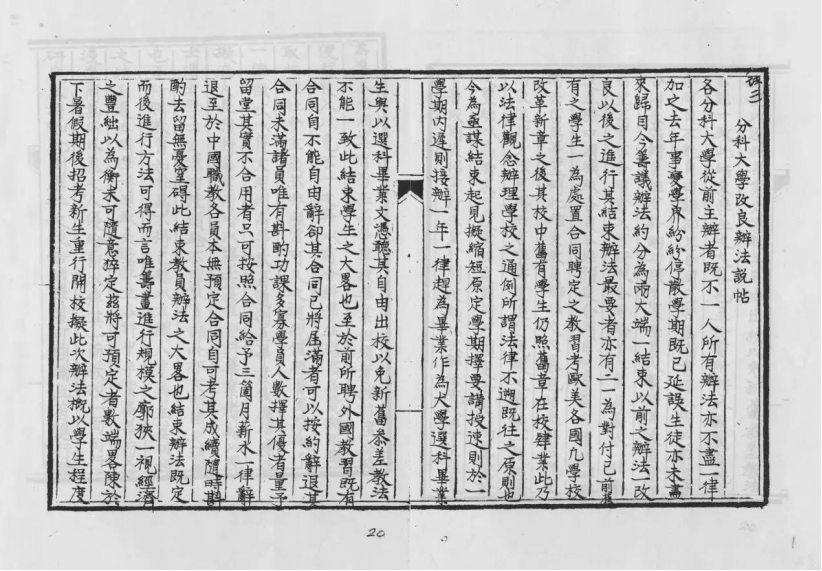 分科大學改良辦法說帖
各分科大學從前主辦者既不一人所有辦法亦不盡一律
加之去年事變學界紛紛停散學期既已延誤生徒亦未盡
來歸目今籌議辦法約分為兩大端一結束以前之辦法一改
良以後之進行其結束辦法最要者亦有二一為對付已前舊
有之學生一為處置合同聘定之教習考歐美各國九學校
改革新章之後其校中舊有學生仍照舊章在校肄業此乃
以法律觀念辦理學校之通例所謂法律不溯既往之原則也
今為亟謀結束起見擬縮短原定學期擇要講授速則於一
學期內遲則接辦一年一律趕為畢業作為大學選科畢業
生與以選科畢業文憑聽其自由出校以免新舊參差教法
不能一致此結束學生之大畧也至於前所聘外國教習既有
合同自不能自由辭卻其合同已將屆滿者可以按約辭退其
合同未滿諸員唯有斟酌功課多寡學員人數擇其優者量予
留堂其實不合用者只可按照合同給予三箇月薪水一律辭
退至於中國職教各員本無預定合同自可考其成績隨時斟
酌去留無憂窒碍此結束教員辦法之大畧也結束辦法既定
而後進行方法可得而言唯籌畫進行規模之廓狹一視經濟
之豐絀以為衡未可隨意猝定茲將可預定者數端畧陳於
下暑假期後招考新生重行開校擬此次辦法概以學生程度
20